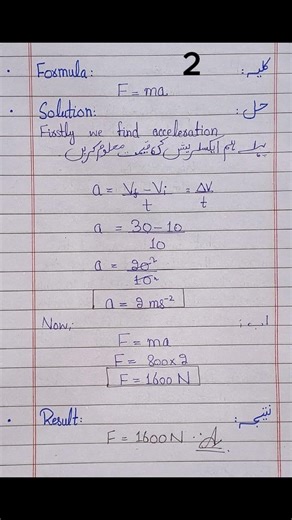 2
Formula: کلیہ:
F = ma
Solution: حل:
Firstly we find acceleration
پہلے ہم ایکسلریشن کی قیمت معلوم کریں
a = Vf - Vi / t = ΔV / t
a = 30 - 10 / 10
a = 20 2 / 10
a = 2 ms⁻²
Now, اب:
F = ma
F = 800 x 2
F = 1600 N
Result: نتیجہ:
F = 1600 N